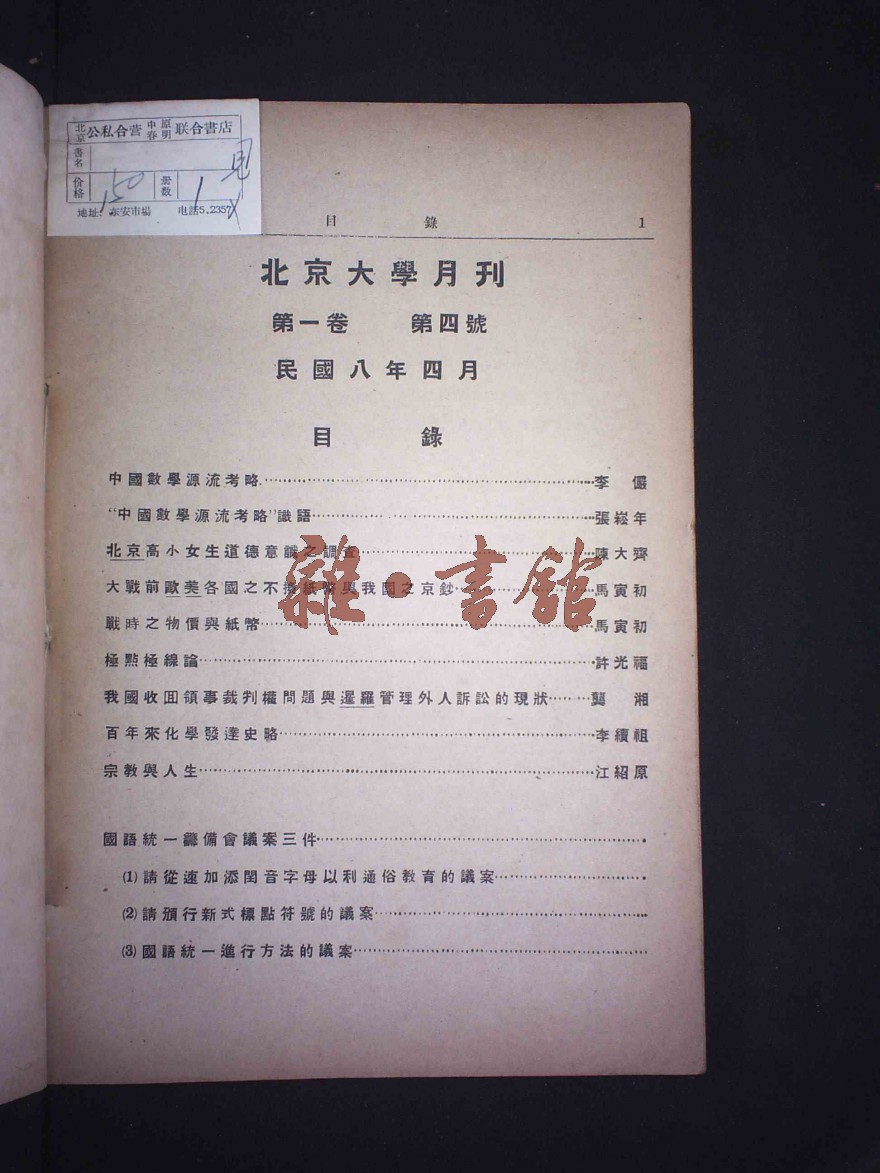 北京 公私合营 中原春明 联合書店
書名
价格 150 册数 1
地址：东安市場 电話5.2357
目錄 1
北京大學月刊
第一卷 第四號
民國八年四月
目錄
中國數學源流考略 李儼
“中國數學源流考略”識語 張崧年
北京高小女生道德意識之調查 陳大齊
大戰前歐美各國之不換紙幣與我國之京鈔 馬寅初
戰時之物價與紙幣 馬寅初
極點極線論 許光福
我國收回領事裁判權問題與暹羅管理外人訴訟的現狀 龔湘
百年來化學發達史略 李續祖
宗教與人生 江紹原
國語統一籌備會議案三件
(1)請從速加添閏音字母以利通俗教育的議案
(2)請頒行新式標點符號的議案
(3)國語統一進行方法的議案
雜·書館